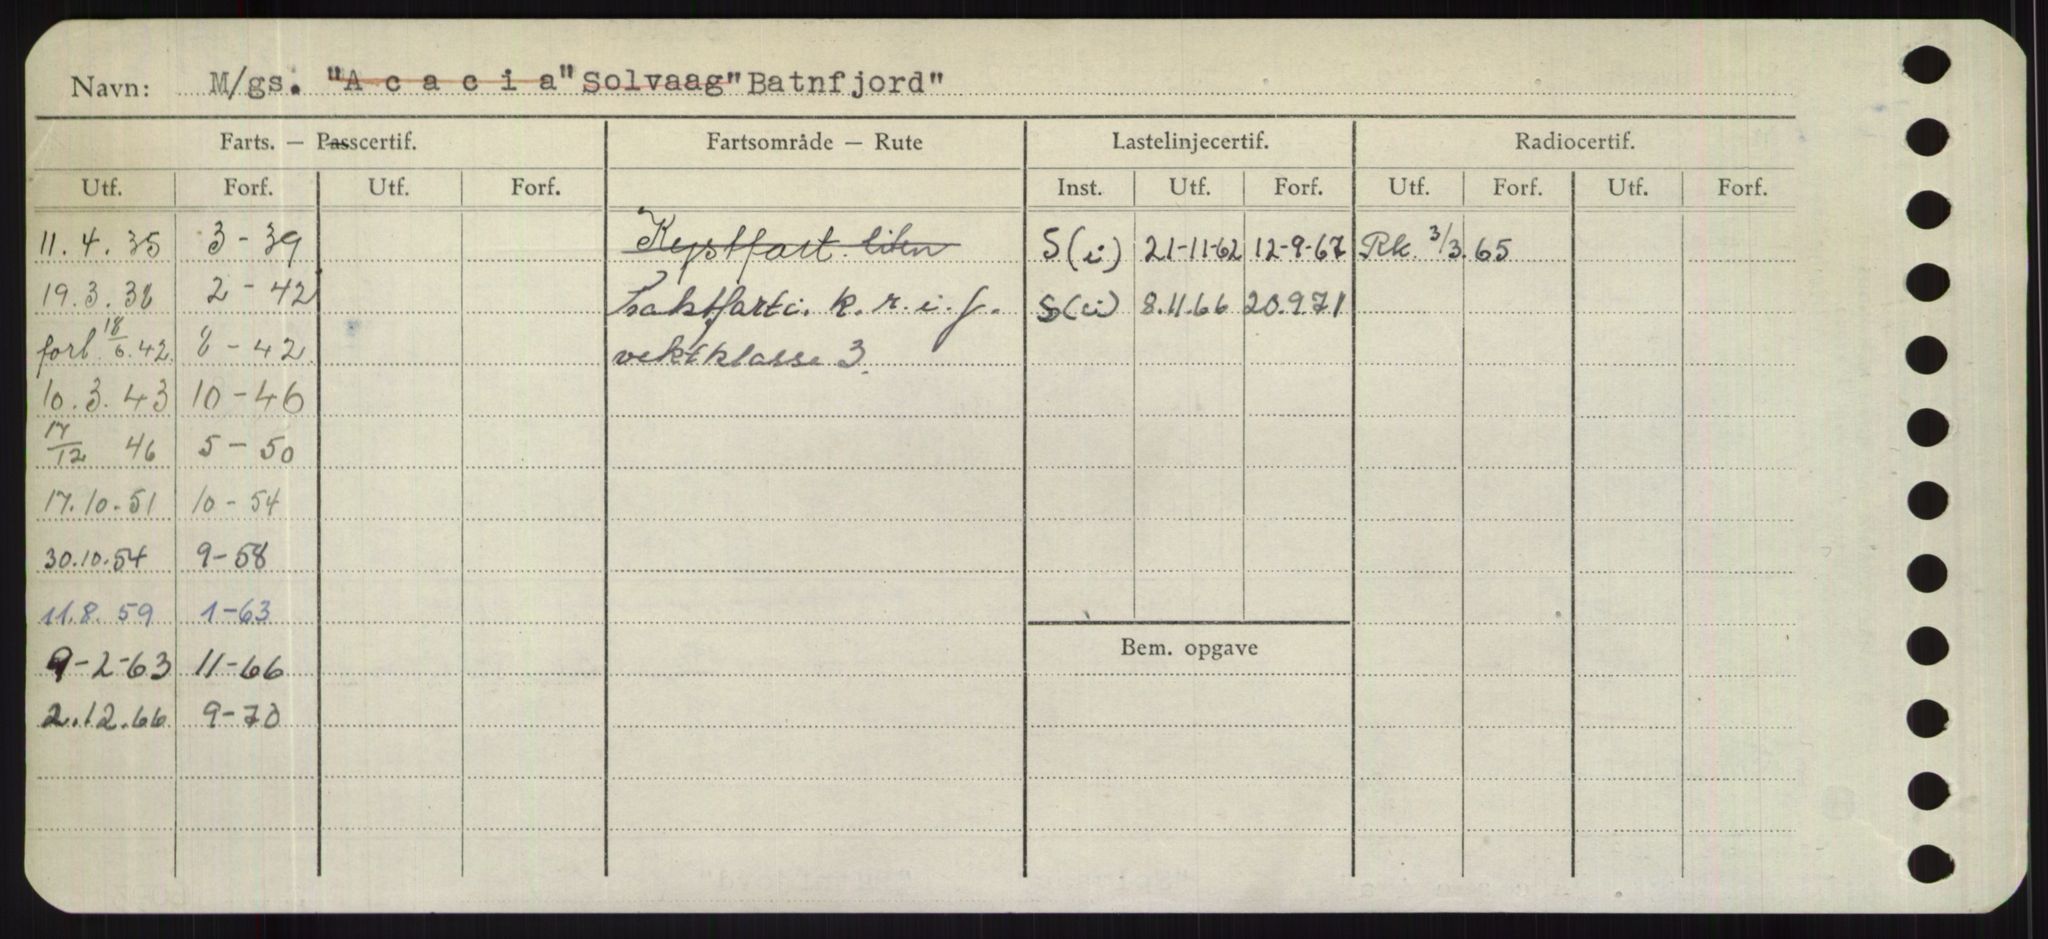 Navn: M/gs. "A c a c i a" Solvaag" Batnfjord"
Farts. — Passcertif. Fartsområde — Rute Lastelinjecertif. Radiocertif.
Utf. Forf. Utf. Forf. Inst. Utf. Forf. Utf. Forf. Utf. Forf.
11.4.35 3-39 Kystfart. liten S(i) 21-11-62 12-9-67 Rk. 3/3.65
19.3.38 2-42 k.r.i.f. S(i) 8.11.66 20.9.71
forl. 18/6.42 8-42 vektklasse 3.
10.3.43 10-46
17/12 46 5-50
17.10.51 10-54
30.10.54 9-58
11.8.59 1-63
Bem. opgave
9-2-63 11-66
2.12.66 9-70